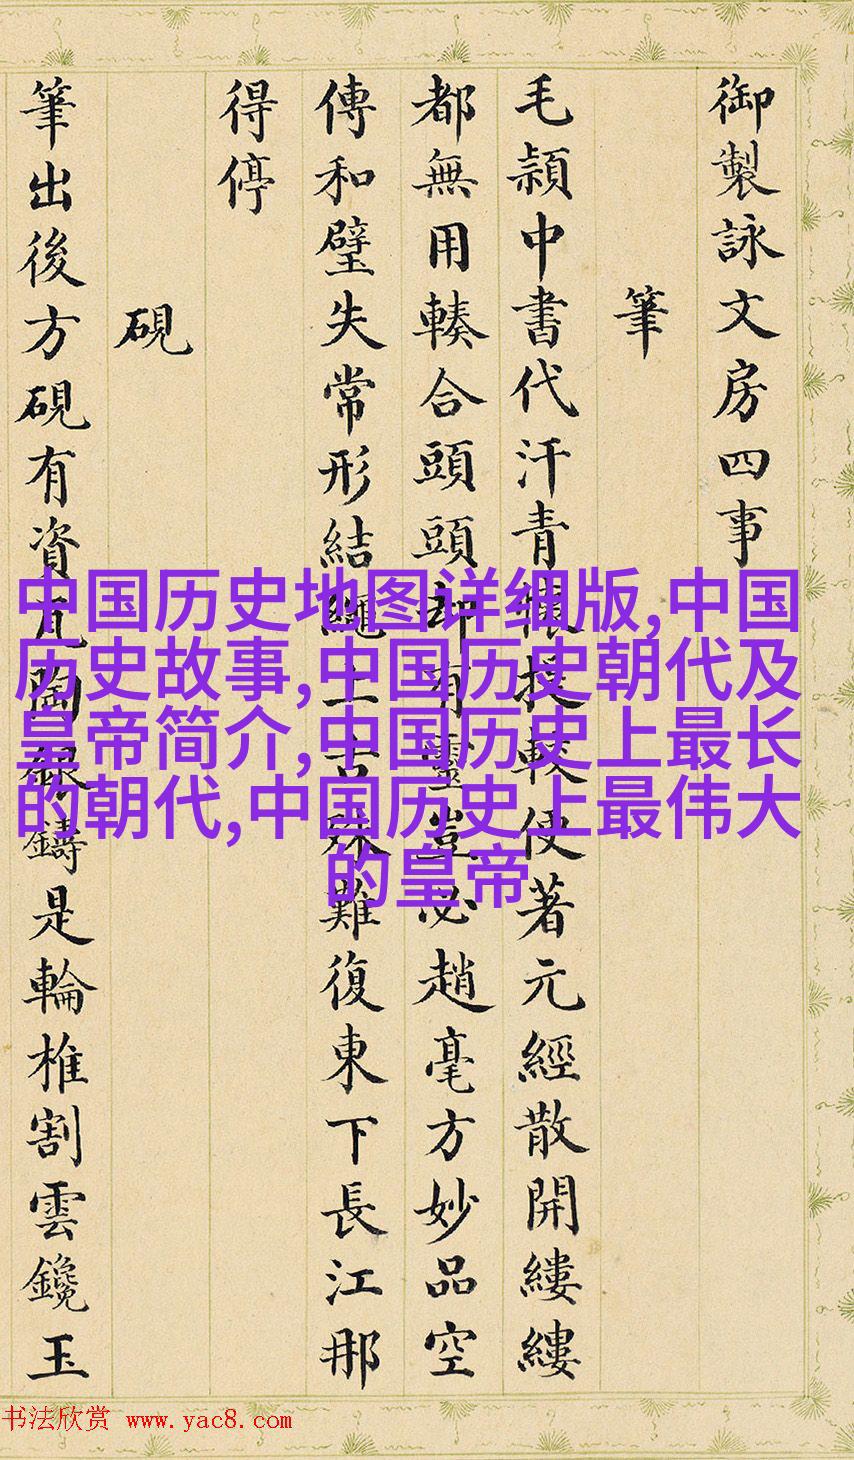 御製詠文房四事
筆
毛頴中書代汗青懷提較便著元經散開縷縷
都無用輳合頭頭却有靈豈必趙毫方妙品空
傳和璧失常形結繩上古殊難復東下長江那
得停
硯
筆出後方硯有資瓦陶銀鑄是輪椎割雲鑱玉
中国历史地图详细版,中国
历史故事,中国历史朝代及
皇帝简介,中国历史上最长
的朝代,中国历史上最伟大
的皇帝
书法欣赏 www.yac8.com